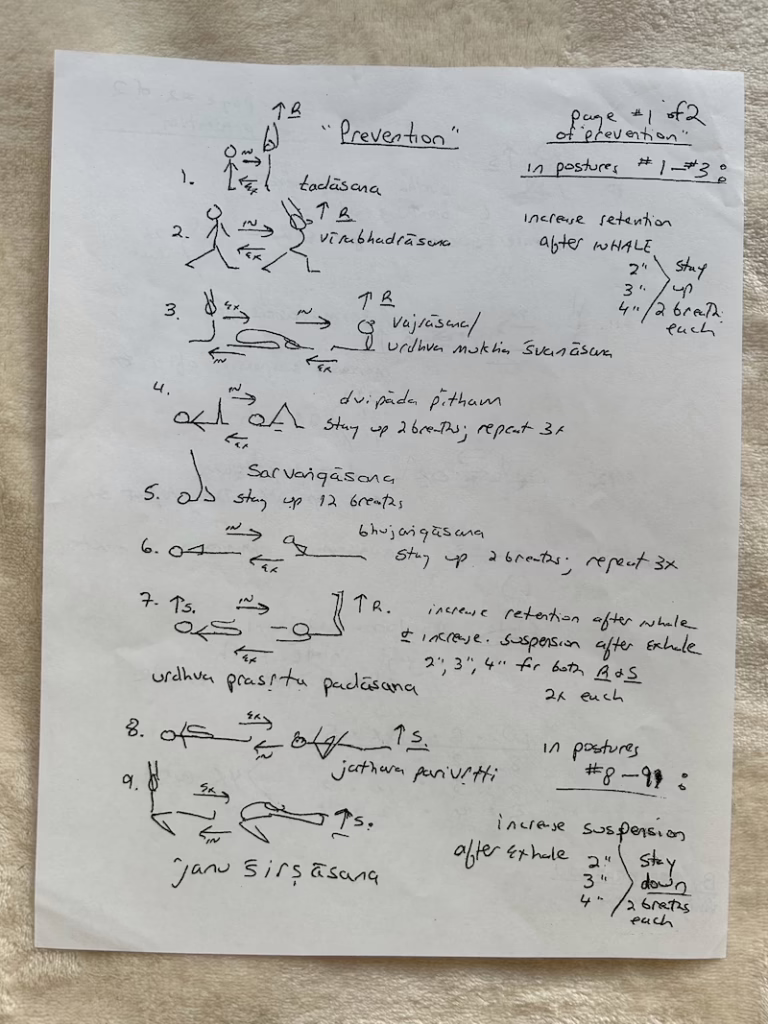 "Prevention"
page #1 of 2
of "prevention"
in postures #1-#3:
↑R
1. IN EX tadāsana
2. IN EX ↑R
vīrabhadrāsana
increase retention
after INHALE
2" stay
3" up
4" 2 breaths
each
3. EX IN ↑R
IN EX
vajrāsana/
urdhva mukha śvanāsana
4. IN EX dvipāda pītham
stay up 2 breaths; repeat 3x
Sarvangāsana
5. stay up 12 breaths
6. IN EX bhujangāsana
stay up 2 breaths; repeat 3x
7. ↑S. IN EX ↑R. increase retention after inhale
+ increase suspension after exhale
2", 3", 4" for both R & S
2x each
urdhva prasṛta padāsana
8. EX IN ↑S.
jathara parivṛtti
in postures
#8-9:
9. EX IN ↑S.
janu śirṣāsana
increase suspension
after exhale
2" stay
3" down
4" 2 breaths
each